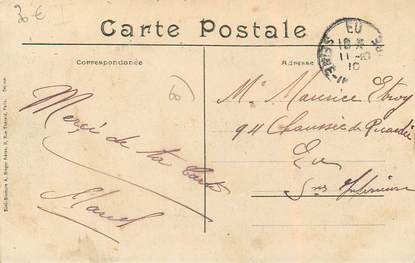 30€
Carte Postale
Correspondance
Adresse
EU
11-10
10
60
Merci de ta carte
Marcel
Mr Maurice
94 Chaussée de Picardie
Eu
Sne Inférieure